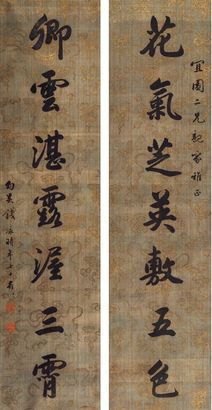 宜園二兄親家雅正
花氣芝英敷五色
卿雲湛露渥三霄
勾吳錢泳時年七十有